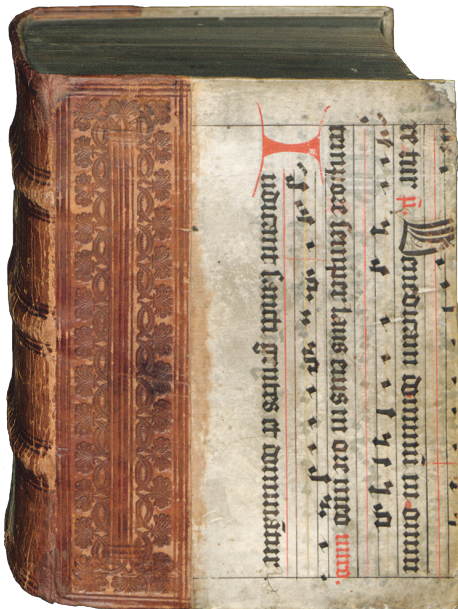 retur ℣. Benedicam dominum in omni
tempore semper laus eius in ore meo
Iudicant sancti gentes et dominātur